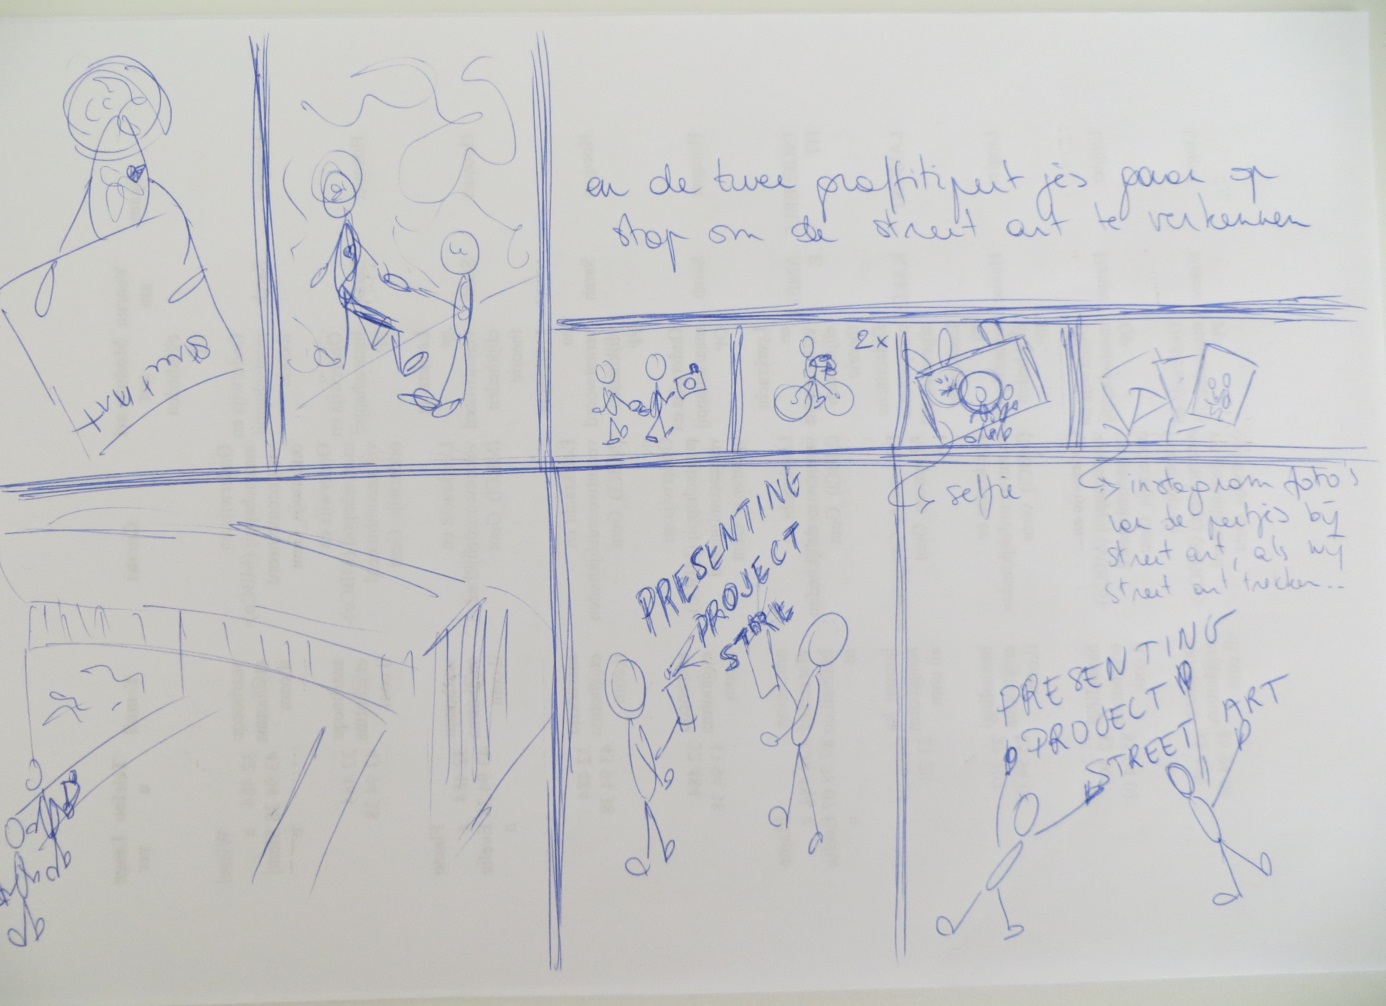 en de twee graffitipertjes gaan op
stap om de street art te verkennen
Street Art
2x
selfie
instagram foto's
van de pertjes bij
street art, als wij
street art trekken..
PRESENTING
PROJECT
PRESENTING
PROJECT
STREET ART